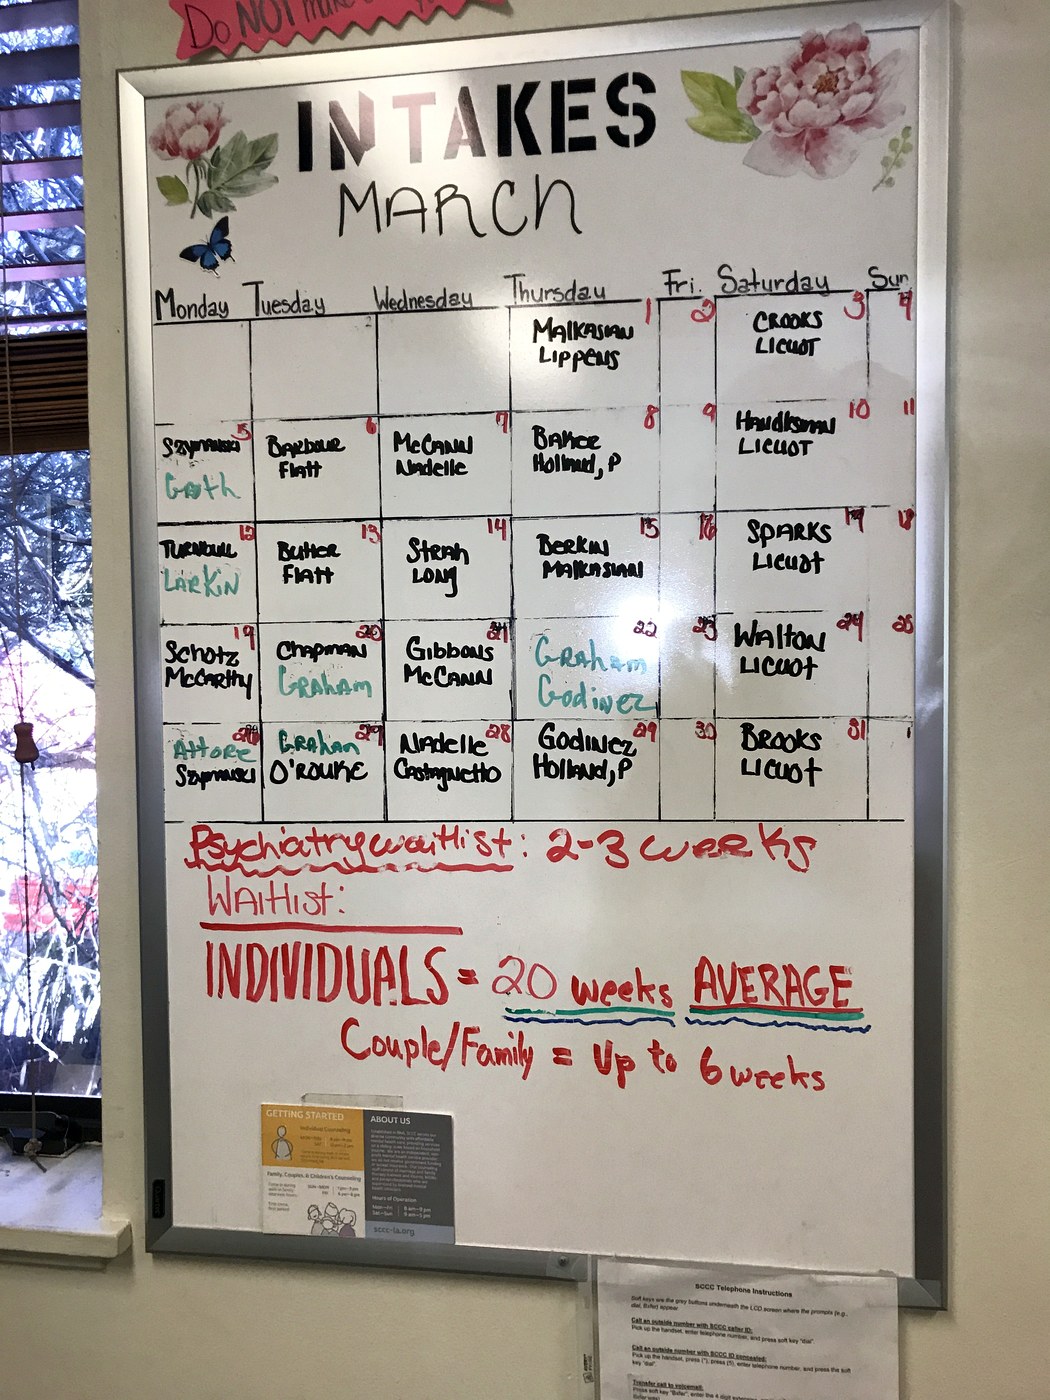 Do NOT make
INTAKES
MARCH
Monday Tuesday Wednesday Thursday Fri. Saturday Sun.
1 2 3 4
MALKASIAN CROOKS
LIPPENS LICUOT
5 6 7 8 9 10 11
Szymanski BARBOUR McCANN BAKER LICUOT
Flatt Nadelle Holland, P
12 13 14 15 16 17 18
TURNBULL Butler Strah BERKIN SPARKS
LARKIN Flatt LONG MALKASIAN LICUOT
19 20 21 22 23 24 25
Schotz CHAPMAN GIBBONS GRAHAM WALTON
McCARTHY GRAHAM McCANN Godinez LICUOT
26 27 28 29 30 31 1
Attore GRAHAM Nadelle GODINEZ BROOKS
Szymanski O'ROURKE Castagnetto Holland, P LICUOT
Psychiatry waitlist: 2-3 weeks
WAITlist:
INDIVIDUALS = 20 weeks AVERAGE
Couple/Family = Up to 6 weeks
GETTING STARTED
Individual Counseling
Family, Couples, & Children's Counseling
ABOUT US
Hours of Operation
Mon-Fri 8 am-9 pm
sccc-la.org
SCCC Telephone Instructions
Soft keys are the grey buttons underneath the LCD screen where the prompts (e.g.,
dial, Exfer) appear
Call an outside number with SCCC caller ID:
Pick up the handset, enter telephone number, and press soft key "dial"
Call an outside number with SCCC ID concealed:
Pick up the handset, press (*), press (1), enter telephone number, and press the soft
key "dial".
Transfer call to voicemail: